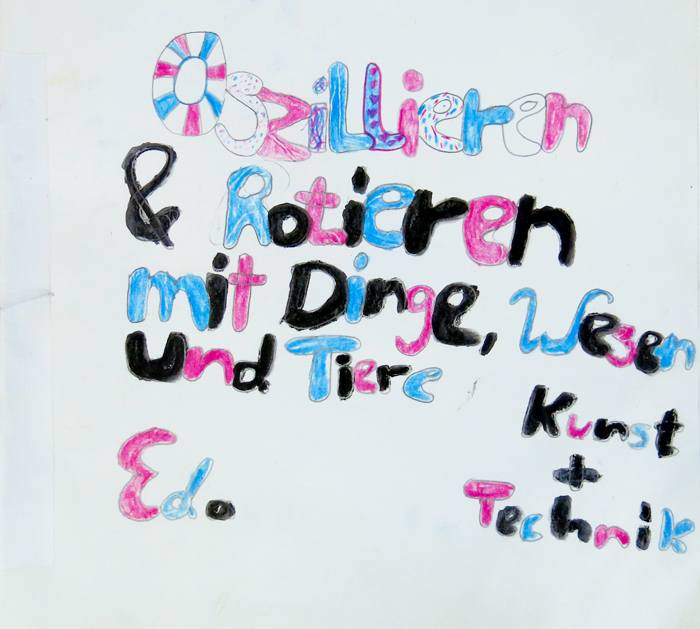 Oszillieren
& Rotieren
mit Dinge, Wesen
und Tiere
Kunst
+
Ed.
Technik